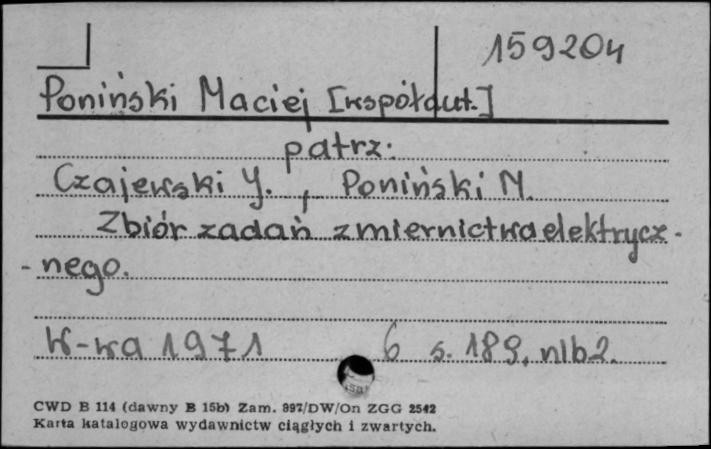 159204
Poniński Maciej [współaut.]
patrz:
Czajewski J., Poniński M.
Zbiór zadań z miernictwa elektrycz-
-nego.
W-wa 1971 6 s. 189, nlb 2.
CWD B 114 (dawny B 15b) Zam. 997/DW/On ZGG 2542
Karta katalogowa wydawnictw ciągłych i zwartych.